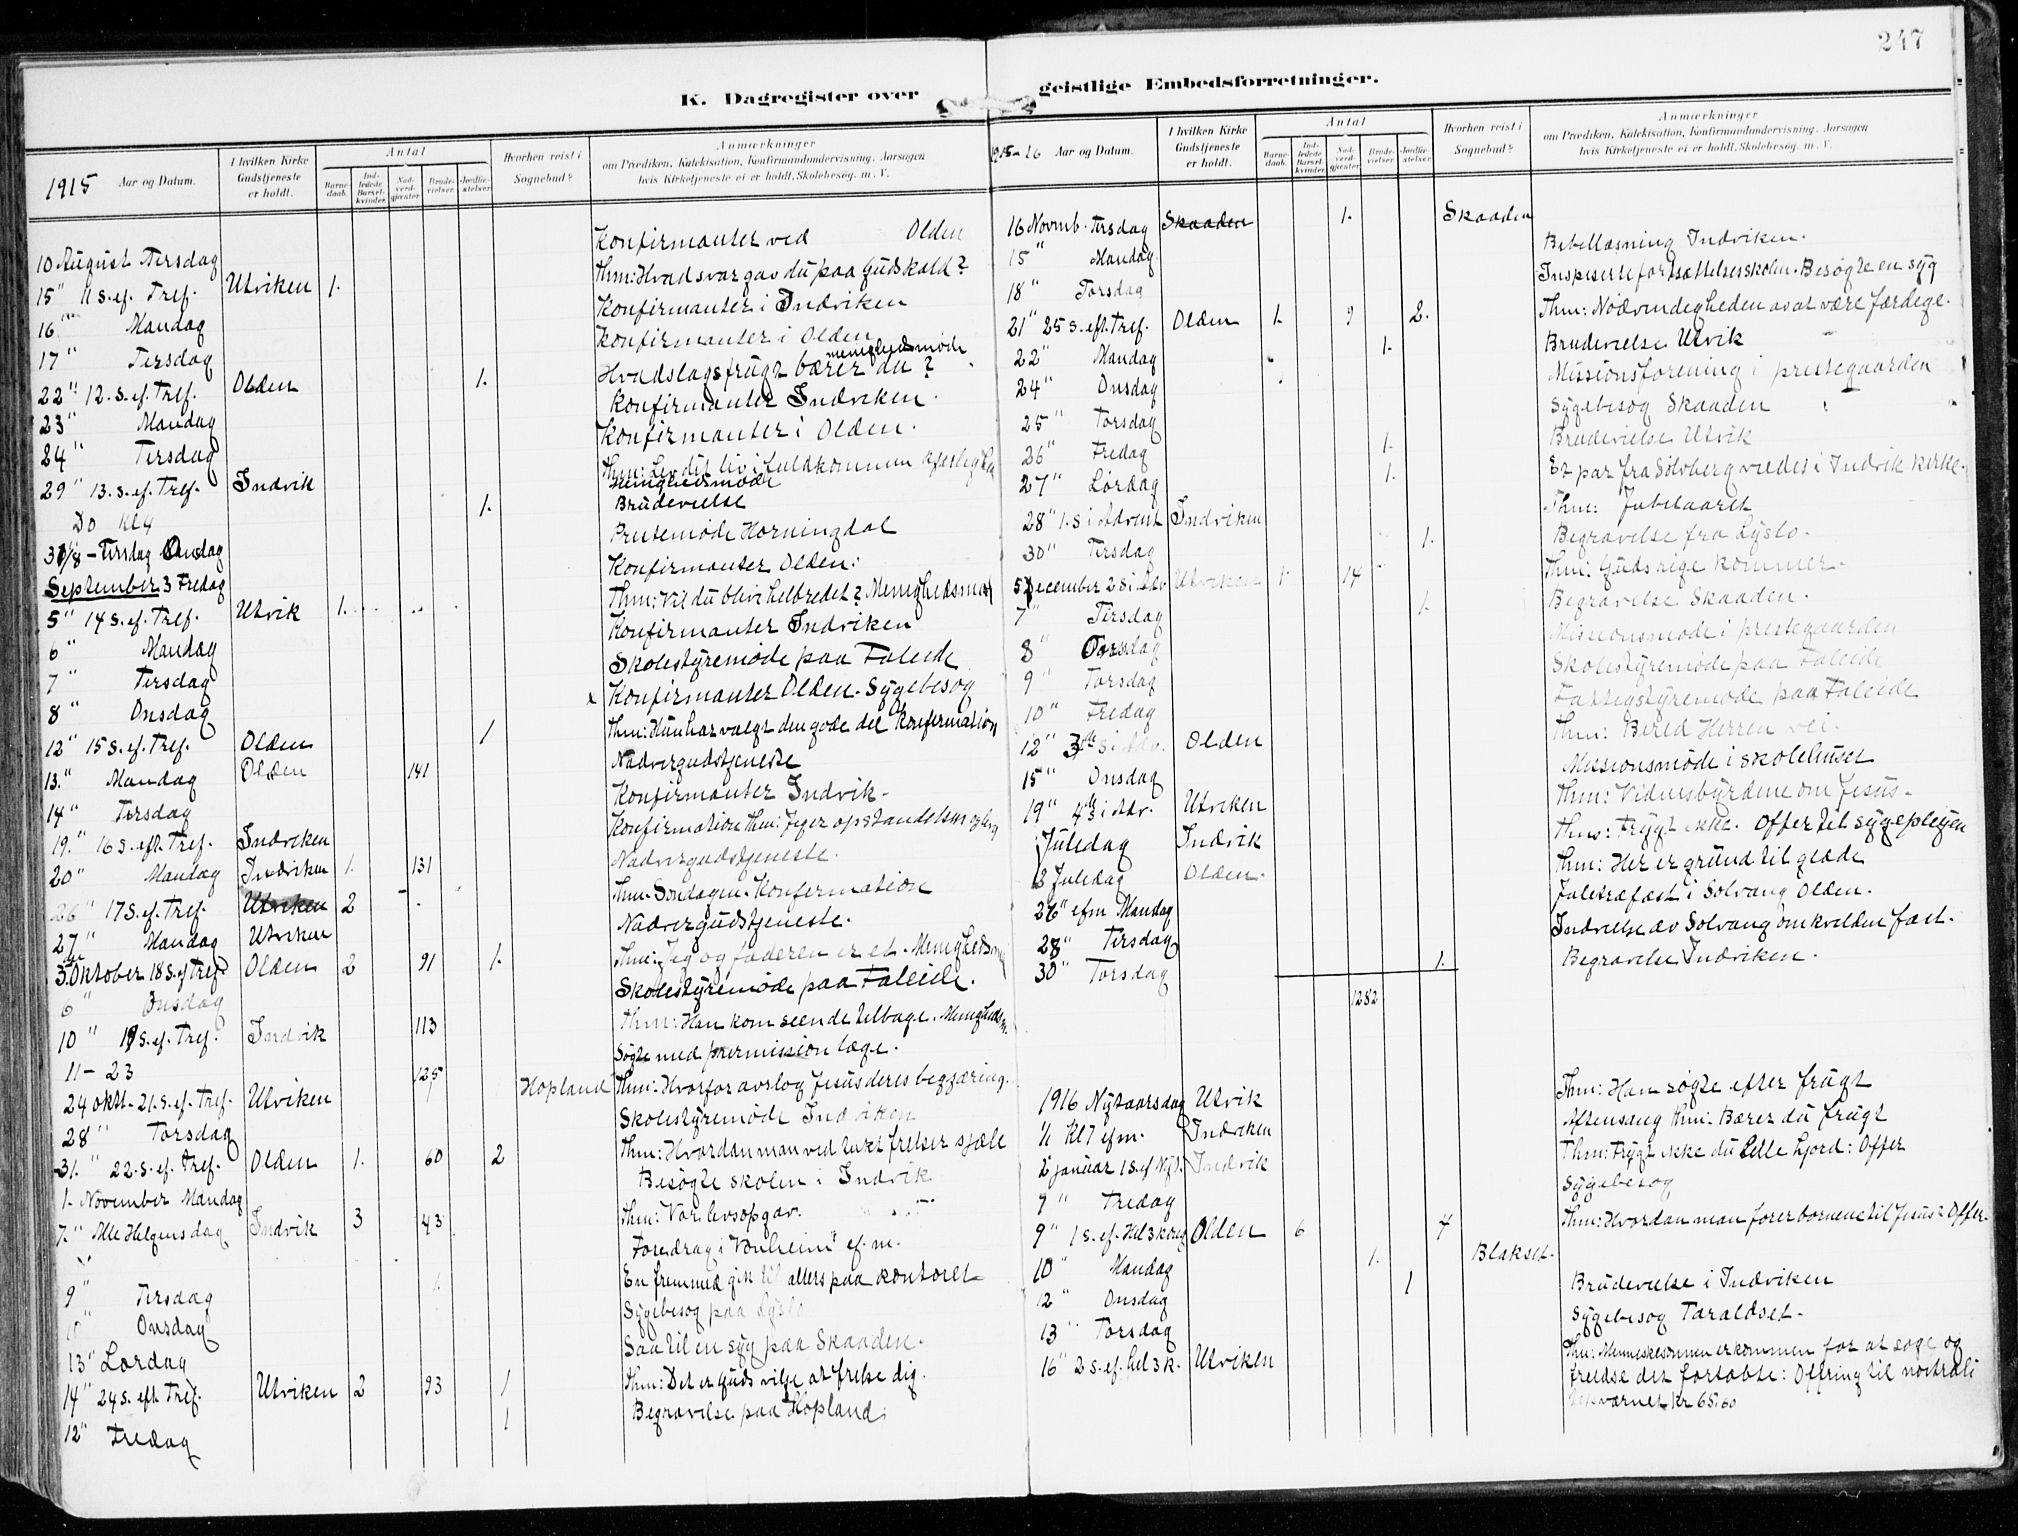 247
K. Dagregister over geistlige Embedsforretninger.
1915 Aar og Datum.
I hvilken Kirke Gudstjeneste er holdt.
Antal
Barnedaab.
Indledede Barselkvinder.
Nadverdgjester.
Brudevielser.
Jordfæstelser.
Hvorhen reist i Sognebud?
Anmærkninger
om Prædiken, Katekisation, Konfirmandundervisning, Aarsagen
hvis Kirketjeneste ei er holdt, Skolebesøg, m. V.
10 August Tirsdag Konfirmanter ved Olden
15" 11 s. ef. Tref. Utviken 1. Thm: Hvad svar gav du paa Guds kald?
16 " Mandag Konfirmanter i Indviken
17 " Tirsdag Konfirmanter i Olden
22" 12. s. ef. Tref. Olden 1. Hvadslags frugt bærer du? menighedsmøde
23 " Mandag Konfirmanter Indviken.
24 " Tirsdag Konfirmanter i Olden.
29 " 13. s. ef. Tref. Indvik Thm: Lev dit liv i fuldkommen kjærlighed menighedsmøde
Do Kl 4 1. Brudevielse
31/8 - Tirsdag Onsdag Prestemøde Horningdal
September 3 Fredag Konfirmanter Olden.
5 " 14 s. ef. Tref. Utvik 1. Thm: Vil du blive helbredet? Menighedsmøt
6 " Mandag Konfirmanter Indviken
7 " Tirsdag Skolestyremøde paa Faleide
8 " Onsdag x Konfirmanter Olden. Sygebesøg
12 " 15 s. ef. Tref. Olden 1 Thm: Hun har valgt den gode del Konfirmation
13. " Mandag Olden 141 Nadvergudstjeneste
14 " Tirsdag Konfirmanter Indvik.
19. " 16 s. eft. Tref. Indviken Konfirmation Thm: Jeg er opstandelsen og
20 " Mandag Indviken 1. 131 Nadvergudstjeneste.
26 " 17 s. ef. Tref. Utviken 2 Thm. Søndagen. Konfirmation
27 " Mandag Utviken Nadvergudstjeneste.
3. Oktober 18 s. ef Tref. Olden 2 91 1. Thm: Jeg og faderen er et. Menighedsm
6 " Onsdag Skolestyremøde paa Faleide.
10 " 19 s. ef. Tref. Indvik 113 Thm: Han kom seende tilbage. Menighedsm.
11 - 23 Søgte med permission læge.
24 okt. 21. s. ef. Tref. Utviken 125 Hopland Thm: Hvorfor avslog Jesus deres begjæring.
28 " Torsdag Skolestyremøde Indviken
31. " 22. s. ef. Tref. Olden 1. 60 2 Thm: Hvordan man ved frelser sjæle
1. November Mandag Besøgte skolen i Indvik
7. " Alle Helgensdag Indvik 3 43 Thm: Vor livsopgav.
Foredrag i "Vonheim" ef. m.
9 " Tirsdag En fremmed gik til alters paa kontoret
" Onsdag Sygebesøg paa Lyslo
13 " Lørdag Saa til en syg paa Skaaden.
14 " 24 s. eft Tref. Utviken 2 93 1 Thm: Det er Guds vilje at frelse dig.
12 " Fredag 1 Begravelse paa Hopland.
1915-16 Aar og Datum.
I hvilken Kirke Gudstjeneste er holdt.
Antal
Barnedaab.
Indledede Barselkvinder.
Nadverdgjester.
Brudevielser.
Jordfæstelser.
Hvorhen reist i Sognebud?
Anmærkninger
om Prædiken, Katekisation, Konfirmandundervisning, Aarsagen
hvis Kirketjeneste ei er holdt, Skolebesøg, m. V.
16 Novmb. Tirsdag Skaaden 1. Skaaden
15 " Mandag Bibellæsning Indviken.
18 " Torsdag Inspiserte fortsættelsesskolen. Besøgte en syg
21 " 25 s. eft. Tref. Olden 1. 9 2. Thm: Nødvendigheden av at være færdige.
22 " Mandag 1. Brudevielse Utvik
24 " Onsdag Missionsforening i prestegaarden
25 " Torsdag Sygebesøg Skaaden
26 " Fredag 1. Brudevielse Utvik
27 " Lørdag 1. Et par fra Sølvberg viedes i Indvik kirke.
28 " 1. s i Advent Indviken Thm: Jubelaaret
30 " Tirsdag 1. Begravelse fra Lyslo.
5 December 2 s i Adv Utviken 1. 14 Thm: Guds rige kommer.
7 " Tirsdag 1. Begravelse Skaaden.
8 " Onsdag Missionsmøde i prestegaarden
9 " Torsdag Skolestyremøde paa Faleide
10 " Fredag Fattigstyremøde paa Faleide
12 " 3de s i Adv. Olden Thm: Bered Herren vei.
15 " Onsdag Missionsmøde i skolehuset
19 " 4de s i Adv. Utviken Thm: Vidnesbyrdene om Jesus.
Juledag Indvik Thm: Frygt ikke. Offer til sygepleien
2 Juledag Olden. Thm: Her er grund til glæde
27 " efm Mandag Juletræfæst i Solvang Olden.
28 " Tirsdag Indvielse av Solvang om kvelden fæst.
30 " Torsdag 1. Begravelse Indviken.
1282
1916 Nytaarsdag Utvik Thm: Han søgte efter frugt
1/1 Kl 7 efm. Indviken Aftensang Thm. Bærer du frugt
2 januar 1 s. ef Nyt. Indvik Thm: Frygt ikke du lille hjord: Offer
7 " Fredag Sygebesøg
9 " 1 s. ef. Hel 3 kong Olden 6 4 Thm: Hvordan man fører børnene til Jesus? Offer.
10 " Mandag 1. Blakset.
12 " Onsdag 1 Brudevielse i Indviken
13 " Torsdag Sygebesøg Taraldset.
16 " 2 s. ef. hel 3 k. Utviken Thm: Menneskesønnen er kommen for at søge og
frelse det fortabte: Ofring til nøitrali
tetsvarnet Kr 65,60